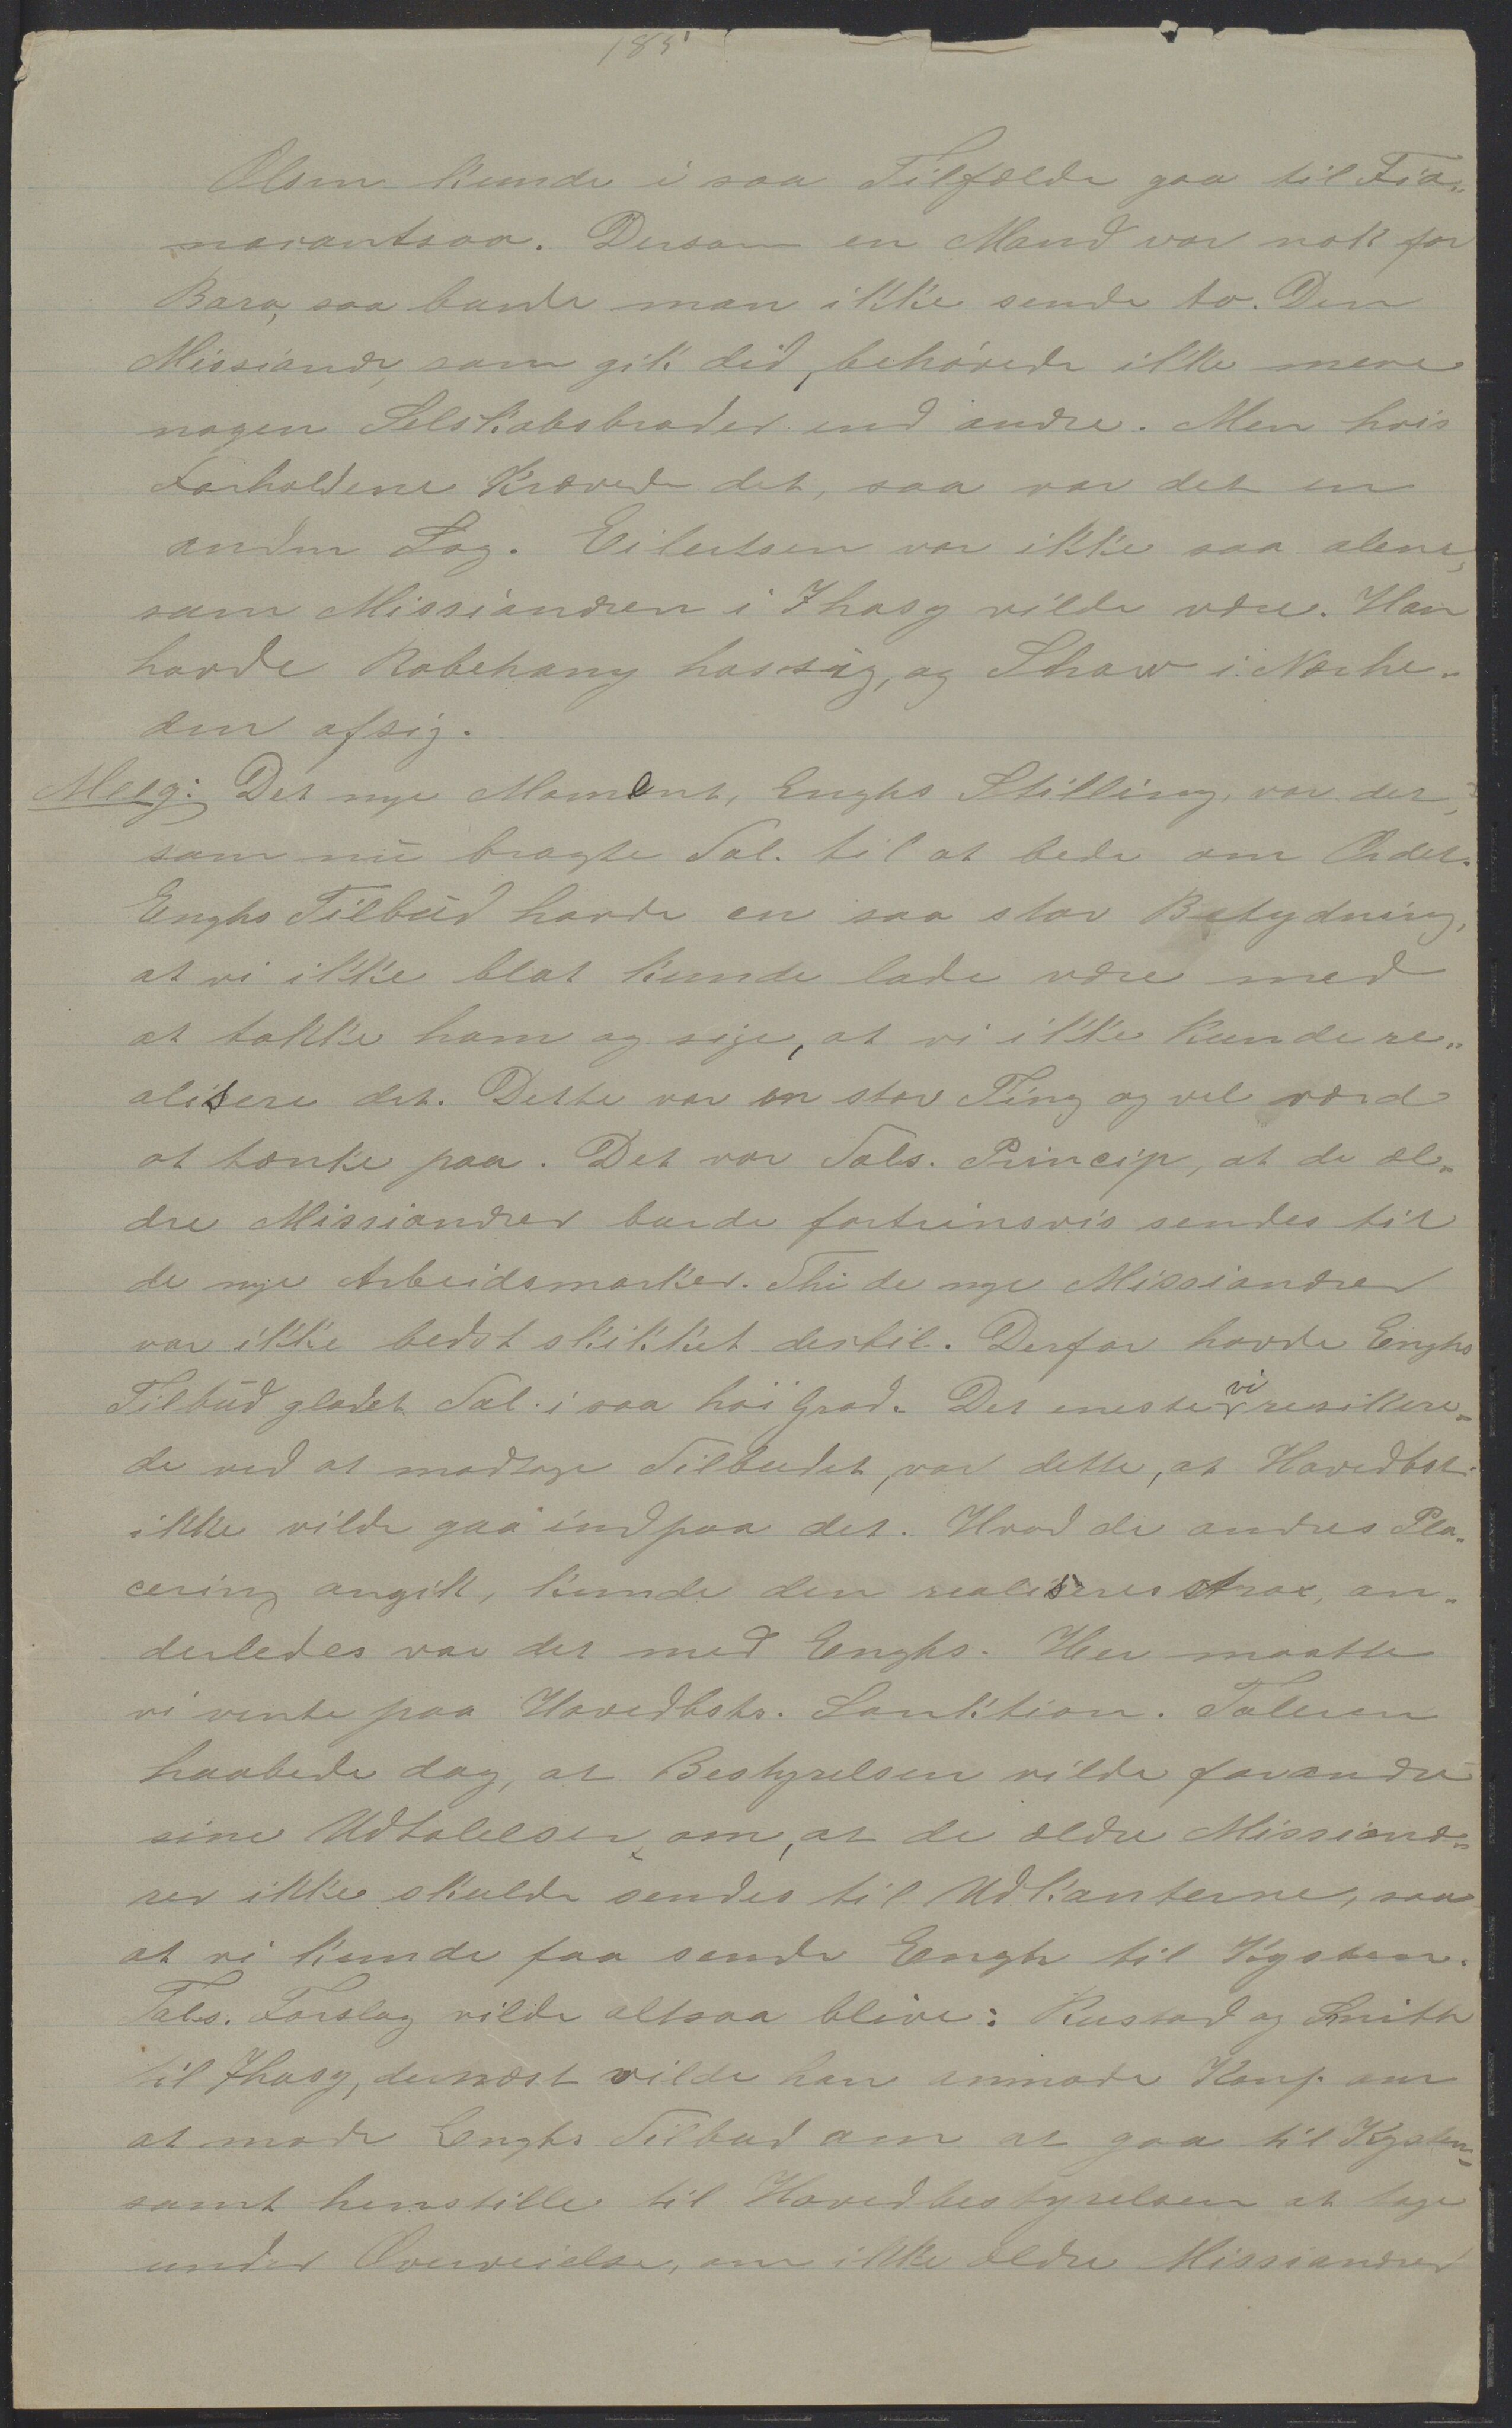 185
Olsen kunde i saa Tilfælde gaa til Fia„
narantsoa. Dersom en Mand var nok for
Bara, saa burde man ikke sende to. Den
Missionær, som gik did, behøvede ikke mere
nogen Selskabsbroder end andre. Men hvis
Forholdene krævede det, saa var det en
anden Sag. Eilertsen var ikke saa alene,
som Missionæren i Ihosy vilde være. Han
havde Rabehany hos sig, og Shaw i Nærhe„
den af sig.
Meeg: Det nye Moment, Enghs Stilling, var det,
som nu bragte Tal. til at bede om Ordet.
Enghs Tilbud havde en saa stor Betydning,
at vi ikke blot kunde lade være med
at takke ham og sige, at vi ikke kunde re„
alisere det. Dette var en stor Ting og vel værd
at tænke paa. Det var Tals. Princip, at de æl„
dre Missionærer burde fortrinsvis sendes til
de nye Arbeidsmarker. Thi de nye Missionærer
var ikke bedst skikket dertil. Derfor havde Enghs
Tilbud glædet Tal. i saa høi Grad. Det eneste vi resikere„
de ved at modtage Tilbudet, var dette, at Hovedbst.
ikke vilde gaa ind paa det. Hvad de andres Pla„
cering angik, kunde den realiseres strax, an„
derledes var det med Enghs. Her maatte
vi vente paa Hovedbsts. Sanktion. Taleren
haabede dog, at Bestyrelsen vilde forandre
sine Udtalelser om, at de ældre Missionæ„
rer ikke skulde sendes til Udkanterne, saa
at vi kunde faa sende Engh til Kysten.
Tals. Forslag vilde altsaa blive: Rustad og Smith
til Ihosy, dernæst vilde han anmode Konf. om
at møde Enghs Tilbud om at gaa til Kysten,
samt henstille til Hovedbestyrelsen at tage
under Overveielse, om ikke ældre Missionærer